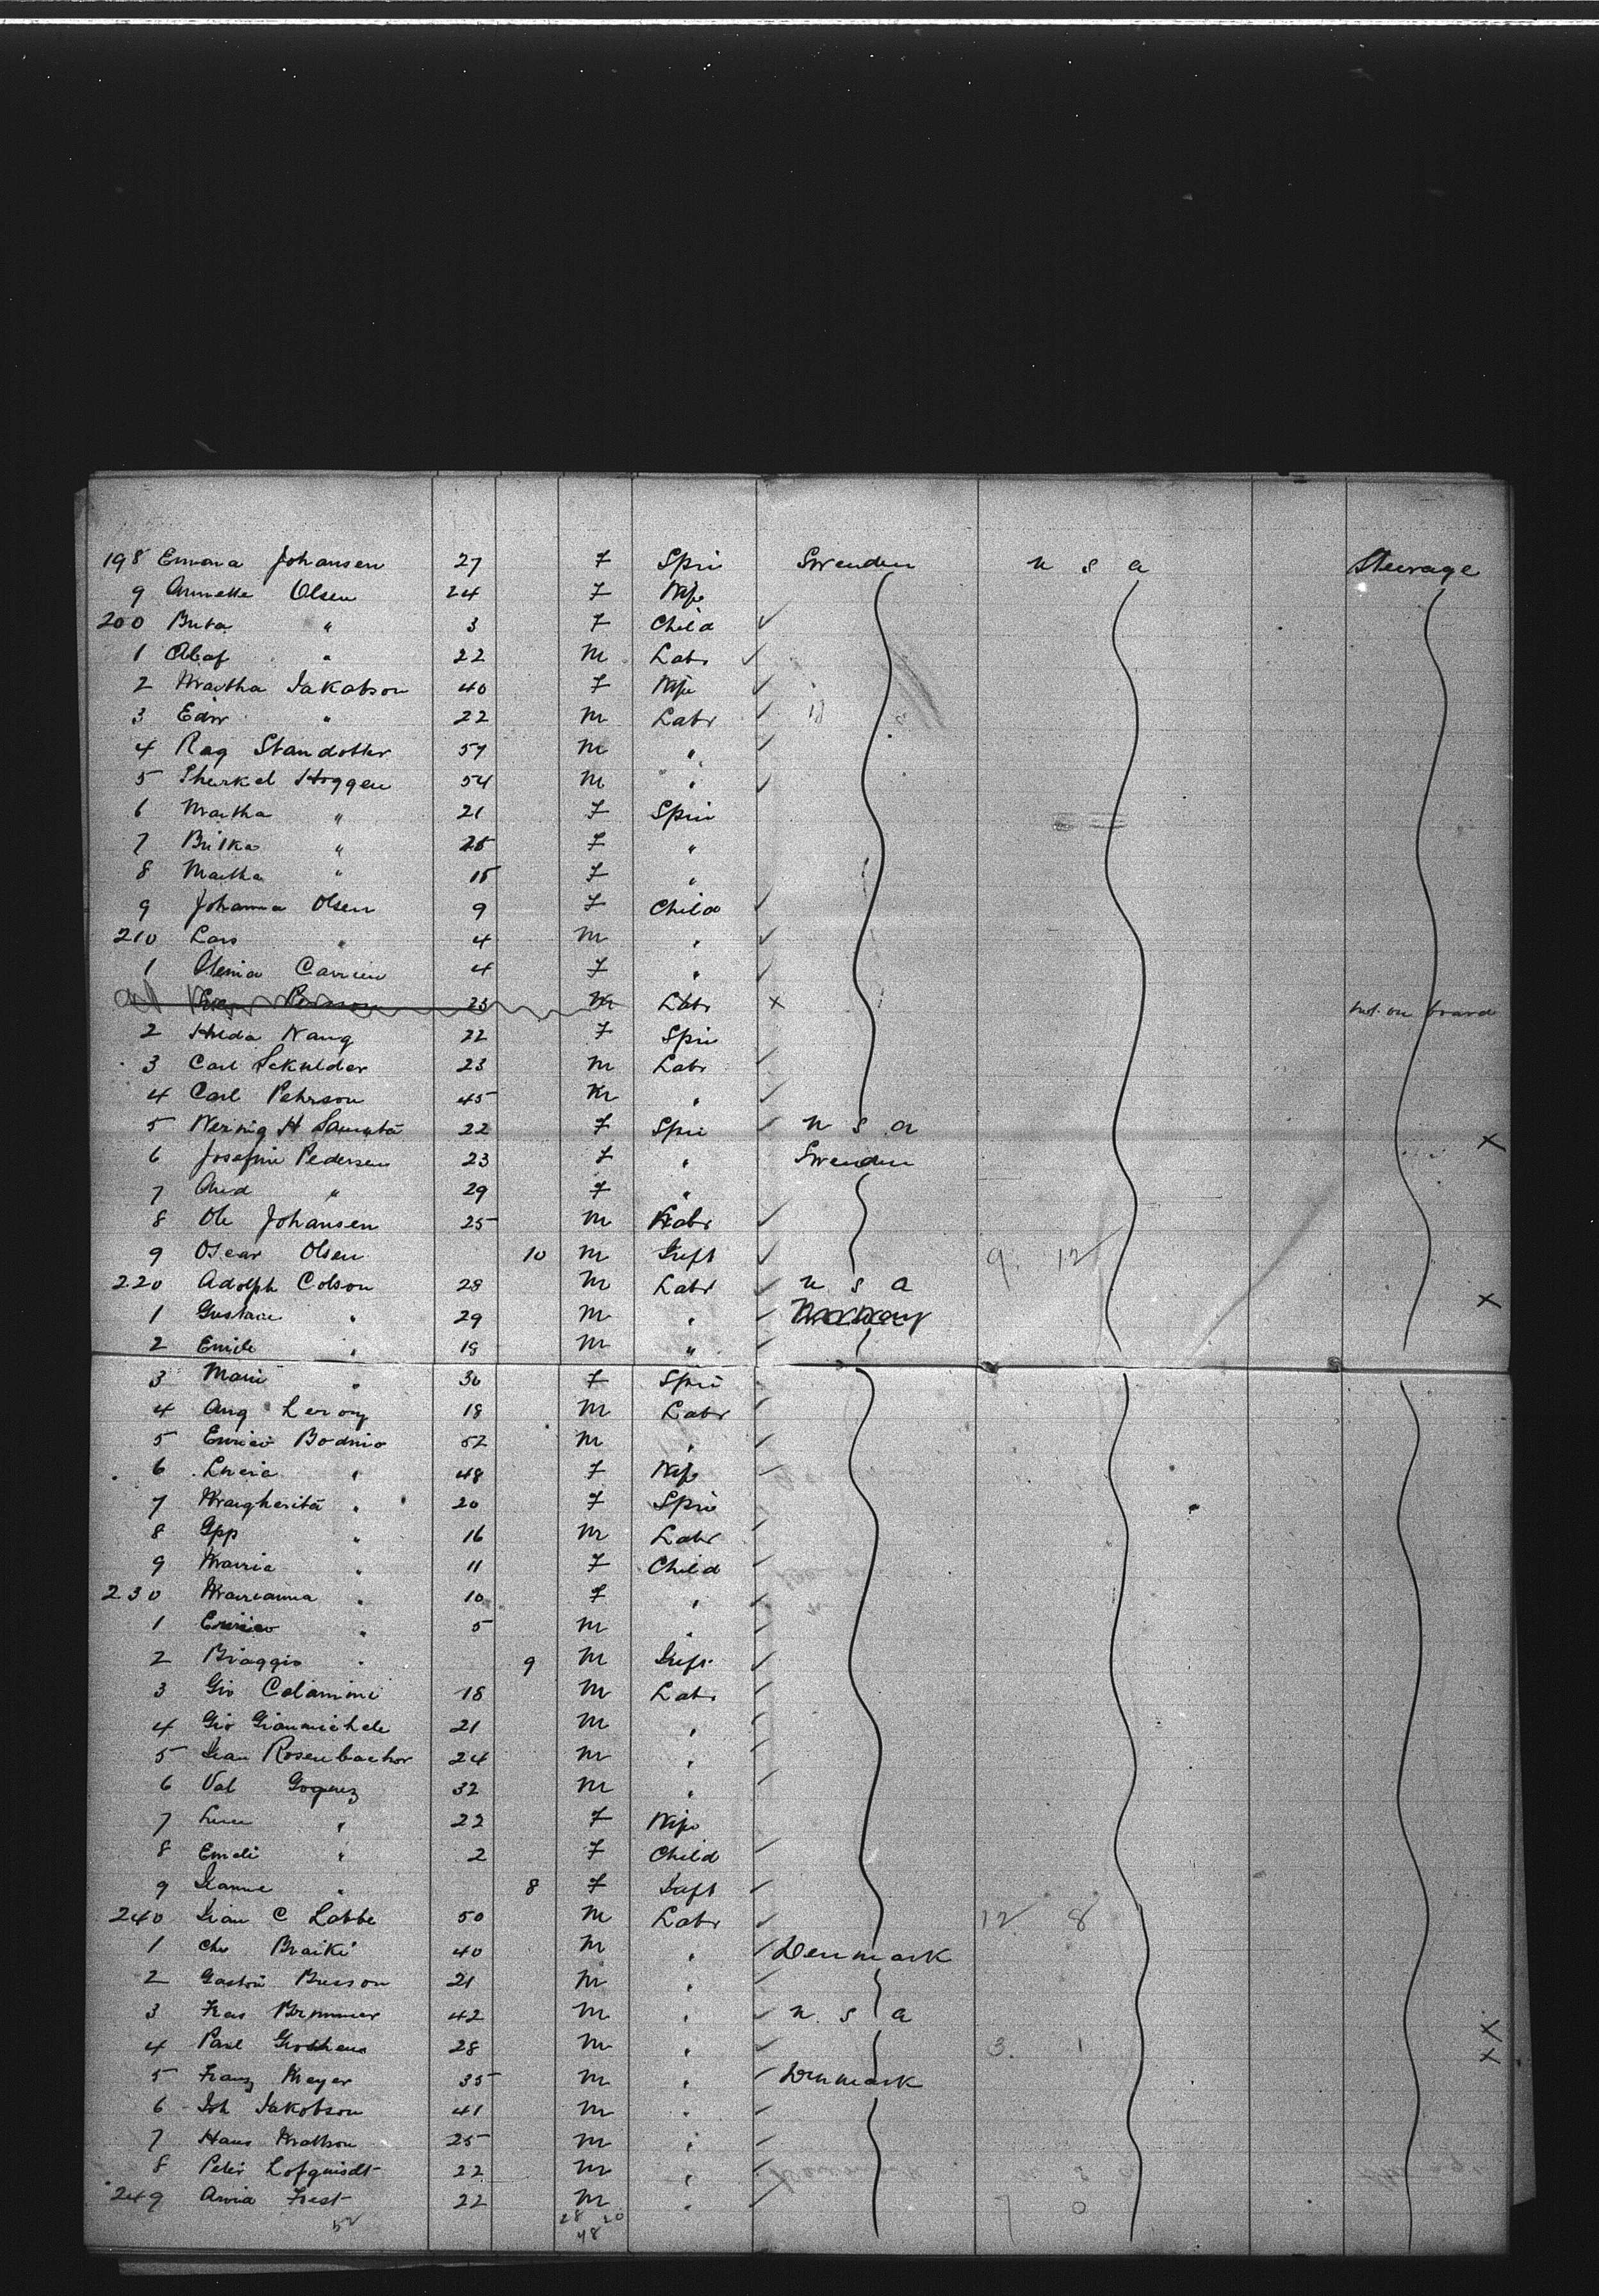 198 Emma Johansen 27 F Spin Sweeden U S A Steerage
9 Annette Olsen 24 F Wife
200 Brita " 3 F Child ✓
1 Olaf " 22 M Labr ✓
2 Martha Jakobson 40 F Wife ✓
3 Edw " 22 M Labr ✓
4 Rag Standotter 57 M " ✓
5 Therkel Hoggen 54 M " ✓
6 Martha " 21 F Spin
7 Britka " 25 F "
8 Martha " 15 F "
9 Johanna Olsen 9 F Child ✓
210 Lars " 4 M " ✓
1 Carrien 4 F " ✓
23 M Labr × not on board
2 Hilda Nang 22 F Spin
3 Carl Sekulder 23 M Labr ✓
4 Carl Pehrson 45 M " ✓
5 H 22 F Spin ✓ U S A ×
6 Josefine Pedersen 23 F " Sweeden
7 " 29 F "
8 Ole Johansen 25 M Labr ✓
9 Oscar Olsen 10 M Inft ✓ 9. 12
220 Adolph Colson 28 M Labr ✓ U S A
1 Gustave " 29 M " ✓ Norway ×
2 Emile " 19 M " ✓
3 Marie " 30 F Spin
4 Aug Leroy 18 M Labr ✓
5 Enrico Bodnio 52 M " ✓
6 Lucia " 48 F Wife ✓
7 Margherita " 20 F Spin
8 Gpp " 16 M Labr ✓
9 Maria " 11 F Child ✓
230 Marianna " 10 F " ✓
1 Enrico " 5 M " ✓
2 Biaggio " 9 M Inft ✓
3 Gio Calamini 18 M Labr ✓
4 Gio Gianmichele 21 M " ✓
5 Jean Rosenbacher 24 M " ✓
6 Val 32 M " ✓
7 " 22 F Wife
8 Emeli " 2 F Child ✓
9 Jeanne " 8 F Inft ✓
240 Jean C Labbe 50 M Labr ✓ 12 8
1 Chr Braiki 40 M " ✓ Denmark
2 Gaston Buisson 21 M " ✓
3 Brimmer 42 M " ✓ U. S A ×
4 Paul 28 M " ✓ 3. 1 ×
5 Franz Meyer 35 M " ✓ Denmark
6 Joh Jakobson 41 M " ✓
7 Hans Mattson 25 M " ✓
8 Peter Lofquisdt 22 M " ✓
249 Arvia Frest 22 M " ✓ 7 0
52 28 20
48